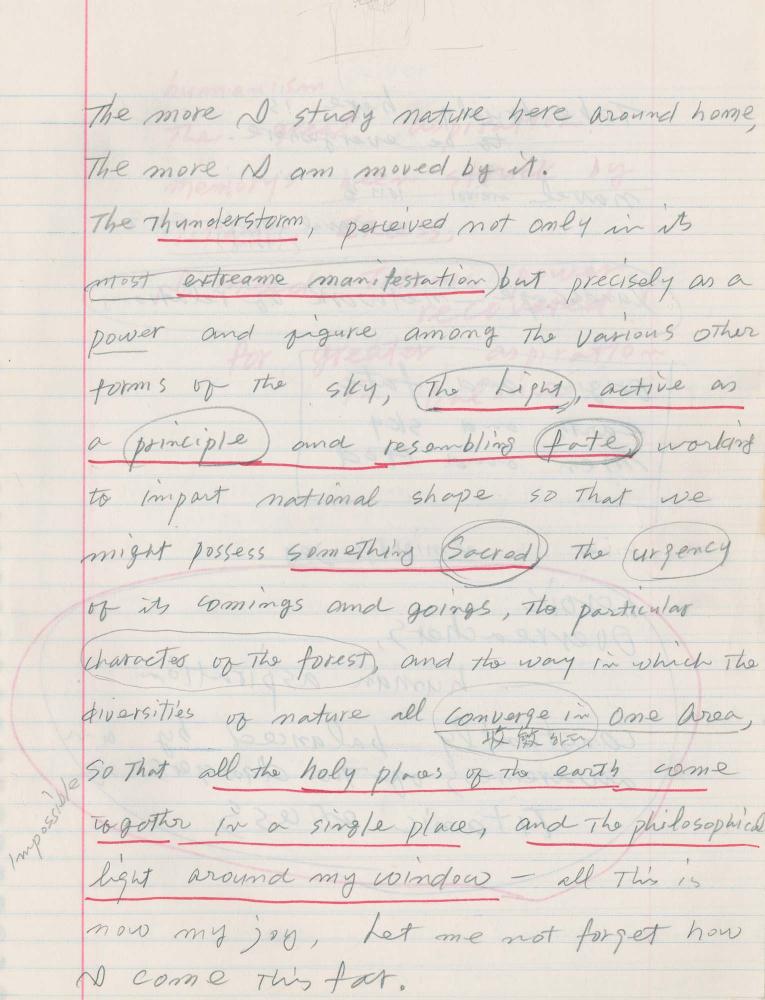 The more I study nature here around home,
The more I am moved by it.
The Thunderstorm, perceived not only in its
most extreame manifestation but precisely as a
power and figure among the various other
forms of the sky, The Light, active as
a principle and resembling fate, working
to impart national shape so that we
might possess something Sacred The urgency
of its comings and goings, the particular
character of the forest, and the way in which the
diversities of nature all converge in one area,
收斂
So that all the holy places of the earth come
together in a single place, and the philosophical
Impossible
light around my window — all This is
now my joy, Let me not forget how
I come This far.